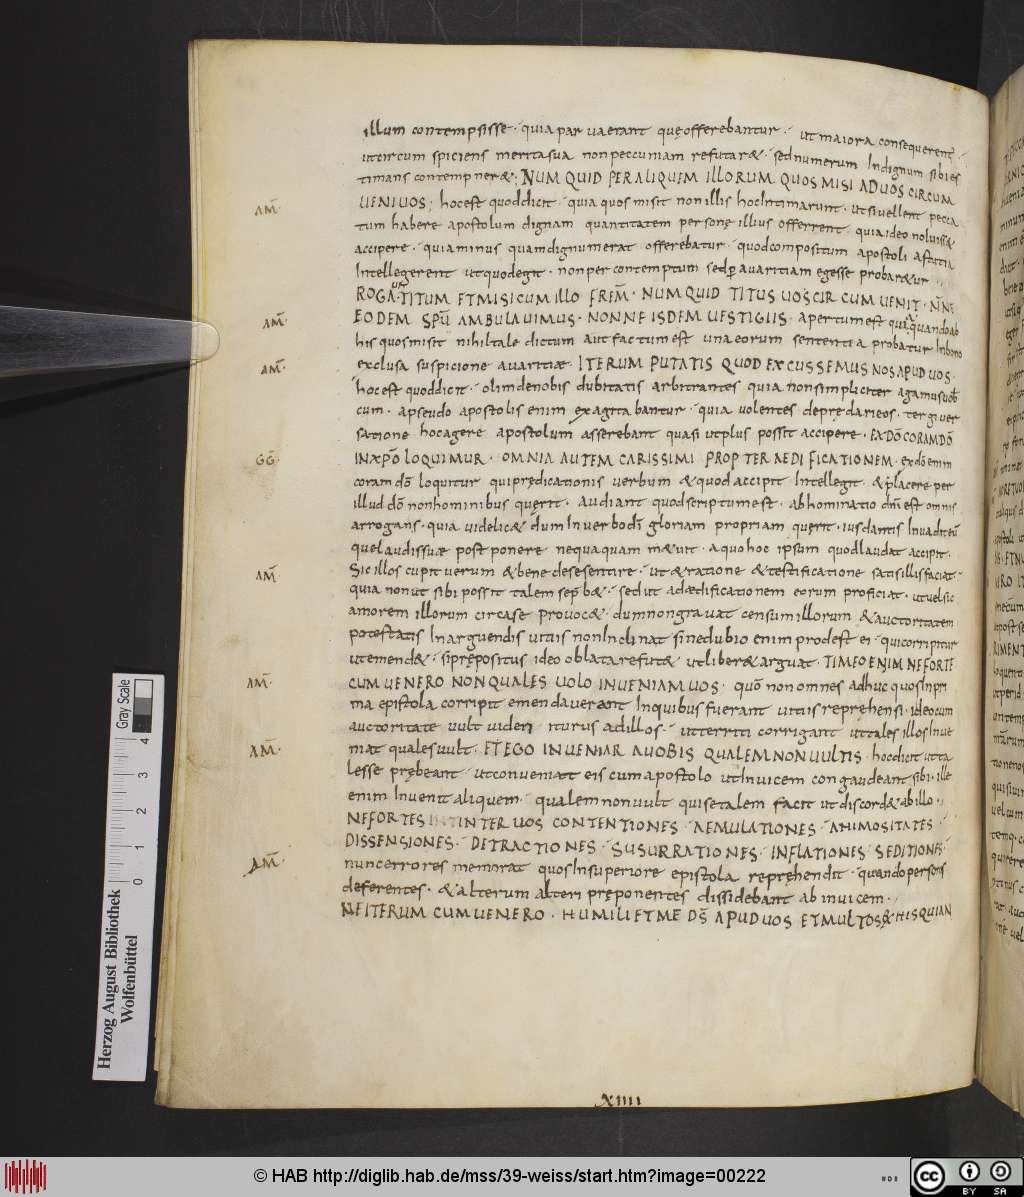 illum contempsisse · quia par ua erant que offerebantur · ut maiora consequerent̄
ut circumspiciens merita sua non peccuniam refutar& · sed numerum Indignum sibi es
timans contempner& ; NUMQUID PER ALIQUEM ILLORUM QUOS MISI AD UOS CIRCUM
AM̄· UENI UOS ; hoc est quod dicit · quia quos misit non illis hoc Intimarunt · ut si uellent pecca
tum habere apostolum dignam quantitatem personę illius offerrent · quia ideo noluiss&
accipere · quia minus quam dignum erat offerebatur · quod compositum apostoli astutia
Intellegerent ut quod egit · non per contemptum sed p auaritiam egesse probar&ur
ROGAUI TITUM ET MISI CUM ILLO FREM̄ · NUMQUID TITUS UOS CIRCUMUENIT · N̄NE
AM̄· EODEM SPŪ AMBULAUIMUS · NONNE ISDEM UESTIGIIS · apertum est quia quando ab
his quos misit nihil tale dictum aut factum est una eorum sententia probatur In bono
AM̄· exclusa suspicione auaritiæ · ITERUM PUTATIS QUOD EXCUSSEMUS NOS APUD UOS ·
hoc est quod dicit · olim de nobis dubitatis arbitrantes quia non simpliciter agamus uob
cum · a pseudo apostolis enim exagitabantur · quia uolentes depredari eos · tergiuer
satione hoc agere apostolum asserebant quasi ut plus possit accipere · EX DŌ CORAM DŌ
GḠ· IN XPŌ LOQUIMUR · OMNIA AUTEM CARISSIMI PROPTER AEDIFICATIONEM · ex dō enim
coram dō loquitur qui prędicationis uerbum & quod accipit Intellegit · & placere per
illud dō non hominibus quęrit · Audiant quod scriptum est · abhominatio dn̄i est omnis
arrogans · quia uidelic& dum In uerbo di gloriam propriam quęrit · ius dantis Inuadit eū
que laudi suæ postponere nequaquam m&uit · a quo hoc ipsum quod laudat accipit ·
AM̄· Sic illos cupit uerum & bene de se sentire · ut & ratione & testificatione satis illis faciat ·
quia non ut sibi possit talem se p̄b& · sed ut ad ædificationem eorum proficiat · ut uel sic
amorem illorum circa se prouoc& · dum non grauat censum illorum & auctoritatem
potestatis In arguendis uitiis non Inclinat sine dubio enim prodest ei · qui corripitur
ut emend& · si prępositus ideo oblata refut& ut liber& arguat · TIMEO ENIM NE FORTE
AM̄· CUM UENERO NON QUALES UOLO INUENIAM UOS · quō non omnes adhuc quos In pri
ma epistola corripit emendauerant In quibus fuerant uitiis reprehensi · ideo cum
auctoritate uult uideri iturus ad illos · ut territi corrigant ut tales illos Inue
AM̄· niat quales uult · ET EGO INUENIAR A UOBIS QUALEM NON UULTIS · hoc dicit ut ta
les se prębeant · ut conueniat eis cum apostolo ut Inuicem congaudeant sibi · ille
enim Inuenit aliquem · qualem non uult qui se talem facit ut discord& ab illo ·
NE FORTE SINT INTER UOS CONTENTIONES · AEMULATIONES · ANIMOSITATES ·
DISSENSIONES · DETRACTIONES · SUSURRATIONES · INFLATIONES SEDITIONES·
AM̄· nunc errores memorat quos In superiore epistola repręhendit · quando personis
deferentes · & alterum alteri pręponentes dissidebant ab inuicem ·
NE ITERUM CUM UENERO · HUMILIET ME DS̄ APUD UOS ET MULTOS EX HIS QUI AN
XIIII
Herzog August Bibliothek
Wolfenbüttel
Gray Scale
0 1 2 3 4
© HAB http://diglib.hab.de/mss/39-weiss/start.htm?image=00222
cc BY SA